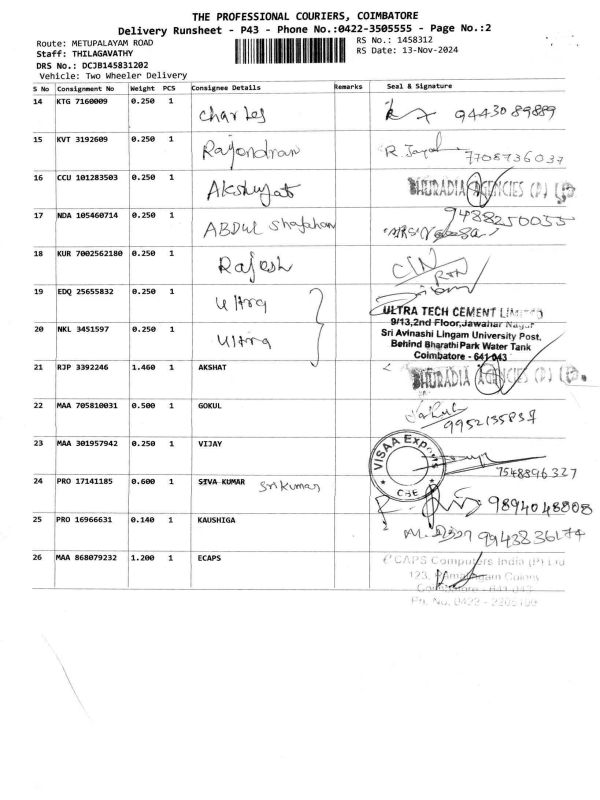 THE PROFESSIONAL COURIERS, COIMBATORE
Delivery Runsheet - P43 - Phone No.:0422-3505555 - Page No.:2
Route: METUPALAYAM ROAD RS No.: 1458312
Staff: THILAGAVATHY RS Date: 13-Nov-2024
DRS No.: DCJB145831202
Vehicle: Two Wheeler Delivery
S No Consignment No Weight PCS Consignee Details Remarks Seal & Signature
14 KTG 7160009 0.250 1 charles 9443089889
15 KVT 3192609 0.250 1 Rajendran R. 7708736037
16 CCU 101283503 0.250 1 Akshyat BHURADIA AGENCIES (P) LTD.
17 NDA 105460714 0.250 1 ABDUL Shajahan 9488250055
18 KUR 7002562180 0.250 1 Rajesh
19 EDQ 25655832 0.250 1 Ultra
20 NKL 3451597 0.250 1 Ultra
ULTRA TECH CEMENT LIMITED
9/13,2nd Floor,Jawahar Nagar
Sri Avinashi Lingam University Post,
Behind Bharathi Park Water Tank
Coimbatore - 641 043
21 RJP 3392246 1.460 1 AKSHAT BHURADIA AGENCIES (P) LTD.
22 MAA 705810031 0.500 1 GOKUL Gokul 9952135837
23 MAA 301957942 0.250 1 VIJAY VISAA Exports CBE 7548896327
24 PRO 17141185 0.600 1 SIVA KUMAR Srikumar 9894048808
25 PRO 16966631 0.140 1 KAUSHIGA 9943836174
26 MAA 868079232 1.200 1 ECAPS
eCAPS Computers India (P) Ltd
123, Ramalingam Colony
Coimbatore - 641 043
Ph. No. 0422 -